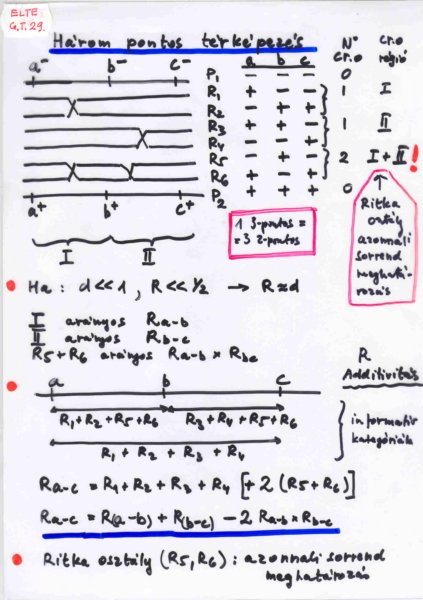 ELTE
G.T. 29.
Három pontos térképezés
N° cr.o
cr.o régió
a⁻ b⁻ c⁻
a b c
P₁ - - - 0
R₁ + - - 1 I
R₂ - + +
R₃ + + - 1 II
R₄ - - +
R₅ - + - 2 I+II!
R₆ + - +
P₂ + + + 0
a⁺ b⁺ c⁺
I II
1 3-pontos =
= 3 2-pontos
Ritka
osztály
azonnali
sorrend
meghatá-
rozás
Ha: d<<1, R<<1/2 → R≈d
I arányos Ra-b
II arányos Rb-c
R5+R6 arányos Ra-b × Rbc
R
Additivitás
a b c
R₁+R₂+R₅+R₆ R₃+R₄+R₅+R₆
R₁ + R₂ + R₃ + R₄
informatív
kategóriák
Ra-c = R₁+R₂+R₃+R₄ [+2(R5+R6)]
Ra-c = R(a-b) + R(b-c) - 2 Ra-b × Rb-c
Ritka osztály (R5, R6): azonnali sorrend
meghatározás